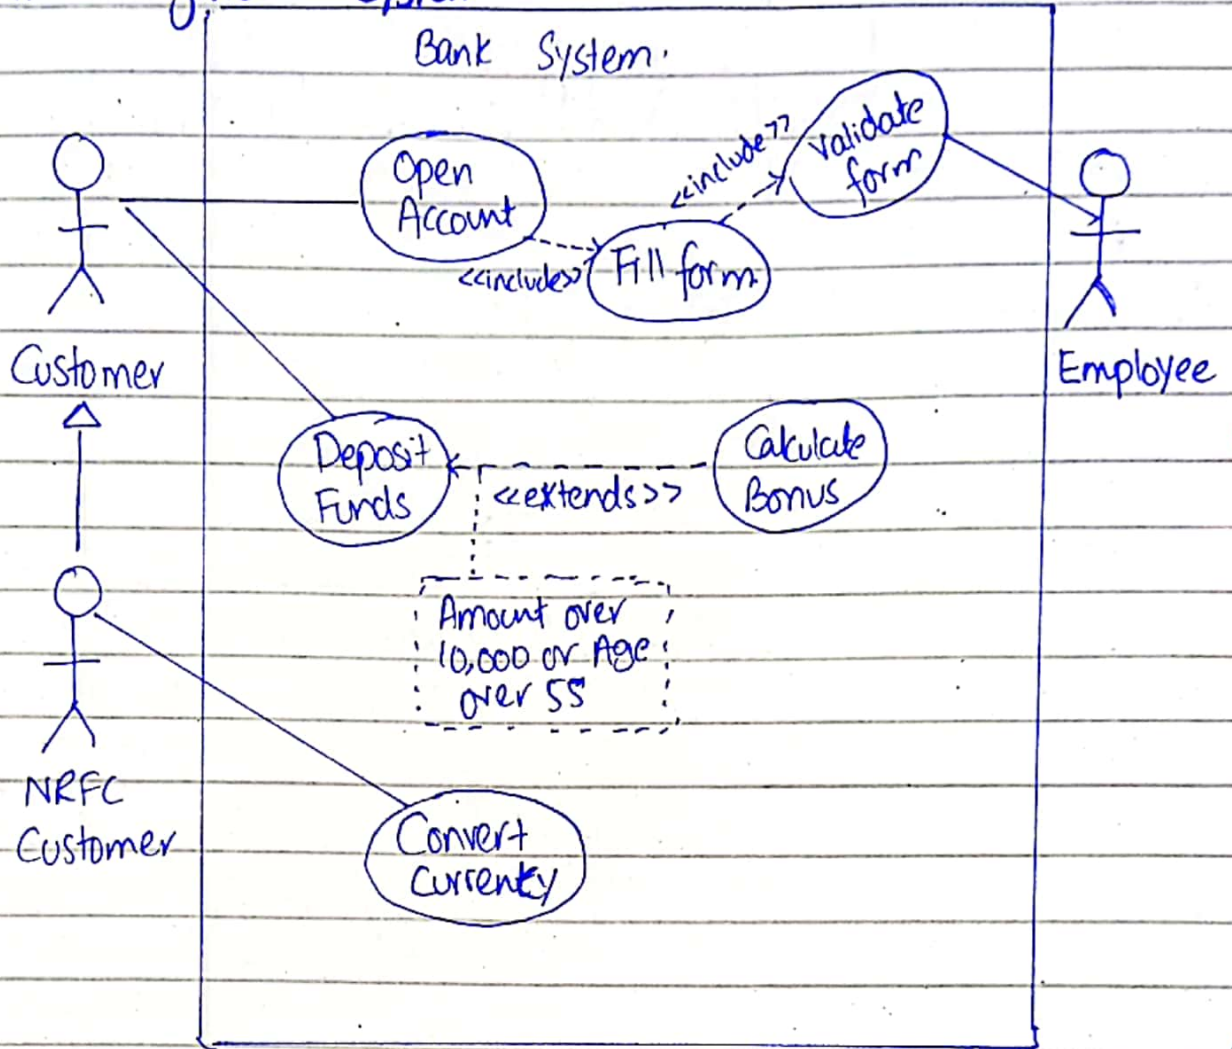 System
Bank System.
Open
Account
<<include>>
Validate
form
<<include>>
Fill form
Customer
Employee
Deposit
Funds
<<extends>>
Calculate
Bonus
Amount over
10,000 or Age
over 55
NRFC
Customer
Convert
Currency